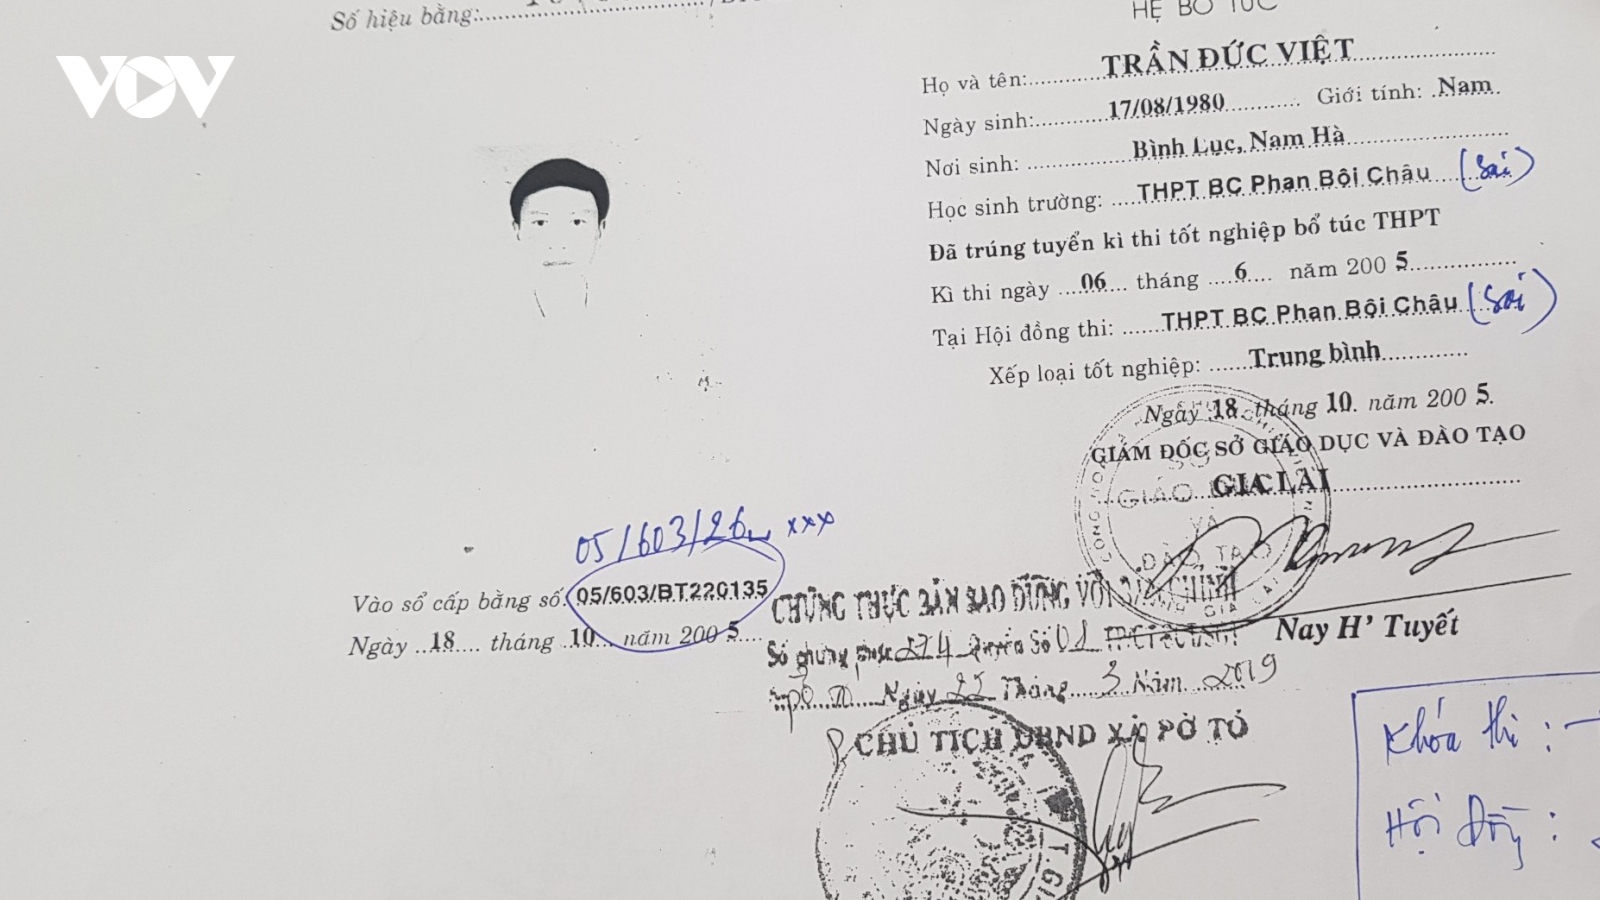 VOV
Số hiệu bằng:
HỆ BỔ TÚC
Họ và tên: TRẦN ĐỨC VIỆT
Ngày sinh: 17/08/1980 Giới tính: Nam
Nơi sinh: Bình Lục, Nam Hà
Học sinh trường: THPT BC Phan Bội Châu (Sai)
Đã trúng tuyển kì thi tốt nghiệp bổ túc THPT
Kì thi ngày 06 tháng 6 năm 2005
Tại Hội đồng thi: THPT BC Phan Bội Châu (Sai)
Xếp loại tốt nghiệp: Trung bình
Ngày 18 tháng 10 năm 2005
GIÁM ĐỐC SỞ GIÁO DỤC VÀ ĐÀO TẠO
GIA LAI
SỞ
GIÁO DỤC
VÀ
ĐÀO TẠO
Nay H' Tuyết
05/603/26 xxx
Vào sổ cấp bằng số: 05/603/BT220135
Ngày 18 tháng 10 năm 2005
CHỨNG THỰC BẢN SAO ĐÚNG VỚI BẢN CHÍNH
Số chứng thực 274 Quyển Số 01
Ngày 22 Tháng 3 Năm 2019
CHỦ TỊCH UBND XÃ PỜ TÓ
Khóa thi :
Hội Đồng :